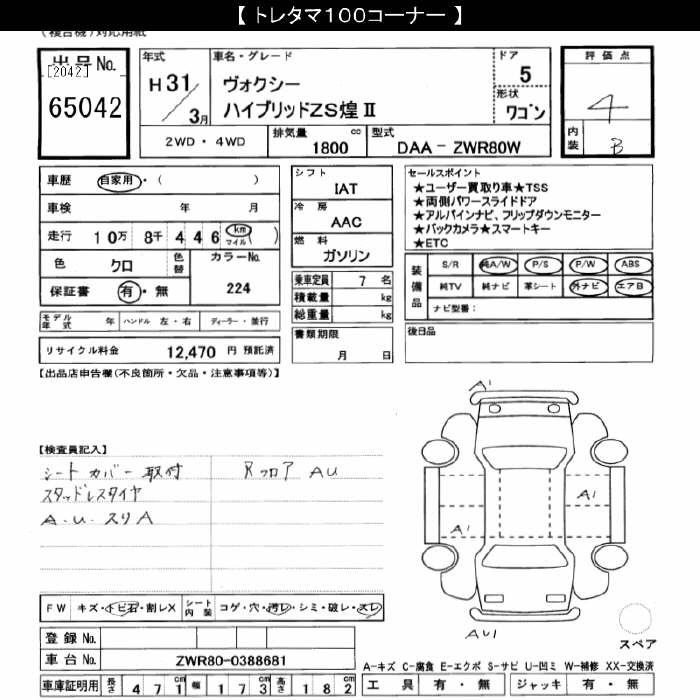 【 トレタマ１００コーナー 】
(複合機)対応用紙
出品No.
[2042]
65042
年式
H 31
3 月
車名・グレード
ヴォクシー
ハイブリッドZS煌Ⅱ
ドア
5
形状
ワゴン
2WD ・ 4WD
排気量 cc
1800
型式
DAA － ZWR80W
評価点
4
内装
B
車歴 自家用 ・ ( )
車検 年 月
走行 10万 8千 4 4 6 km マイル ( )
色 クロ 色替 カラーNo.
保証書 有 ・ 無 224
モデル年式 年 ハンドル 左 ・ 右 ディーラー ・ 並行
リサイクル料金 12,470 円 預託済
シフト
IAT
冷房
AAC
燃料
ガソリン
乗車定員 7 名
積載量 kg
総重量 kg
書類期限
月 日
セールスポイント
★ユーザー買取り車★TSS
★両側パワースライドドア
★アルパインナビ、フリップダウンモニター
★バックカメラ★スマートキー
★ETC
装備品
S/R 純A/W P/S P/W ABS
純TV 純ナビ 革シート 外ナビ エアB
ナビ型番：
後日品
【出品店申告欄(不良箇所・欠品・注意事項等)】
【検査員記入】
シート カバー 取付
スタッドレスタイヤ
A.U.スリA
Rフロア AU
A1
A1
A1
AU1
スペア
FW キズ・トビ石・割レX シート内装 コゲ・穴・汚レ・シミ・破レ・スレ
登録 No.
車台 No. ZWR80-0388681
車庫証明用 長さ 4 7 1 cm 幅 1 7 3 cm 高さ 1 8 2 cm
A－キズ C－腐食 E－エクボ S－サビ U－凹ミ W－補修 XX－交換済
工具 有 ・ 無 ジャッキ 有 ・ 無